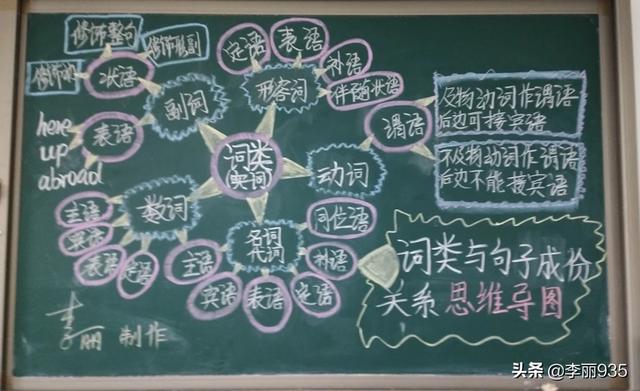 修饰整句
修饰形副
修饰动
状语
副词
表语
here
up
abroad
定语
表语
补语
伴随状语
形容词
谓语
及物动词作谓语
后边可接宾语
不及物动词作谓语
后边不能接宾语
动词
词类
(实词)
数词
主语
宾语
表语
定语
名词
代词
主语
宾语
表语
定语
补语
同位语
词类与句子成份
关系思维导图
李丽 制作
头条 @李丽935